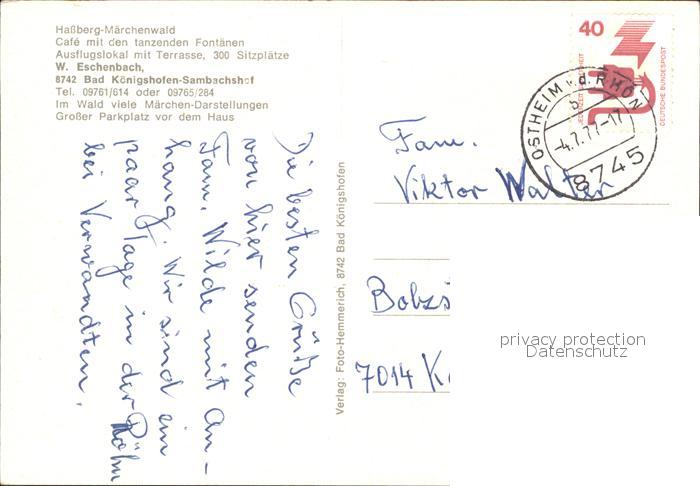 Haßberg-Märchenwald
Café mit den tanzenden Fontänen
Ausflugslokal mit Terrasse, 300 Sitzplätze
W. Eschenbach,
8742 Bad Königshofen-Sambachshof
Tel. 09761/614 oder 09765/284
Im Wald viele Märchen-Darstellungen
Großer Parkplatz vor dem Haus
Die besten Grüße
von hier senden
Fam. Wilde mit An-
hang. Wir sind ein
paar Tage in der Röhn
bei Verwandten.
Verlag: Foto-Hemmerich, 8742 Bad Königshofen
40
JEDERZEIT SICHERHEIT
DEUTSCHE BUNDESPOST
OSTHEIM v.d. RHÖN
-4.7.77-17
8745
Fam.
Viktor Walter
Bobzs
7014 K
privacy protection
Datenschutz